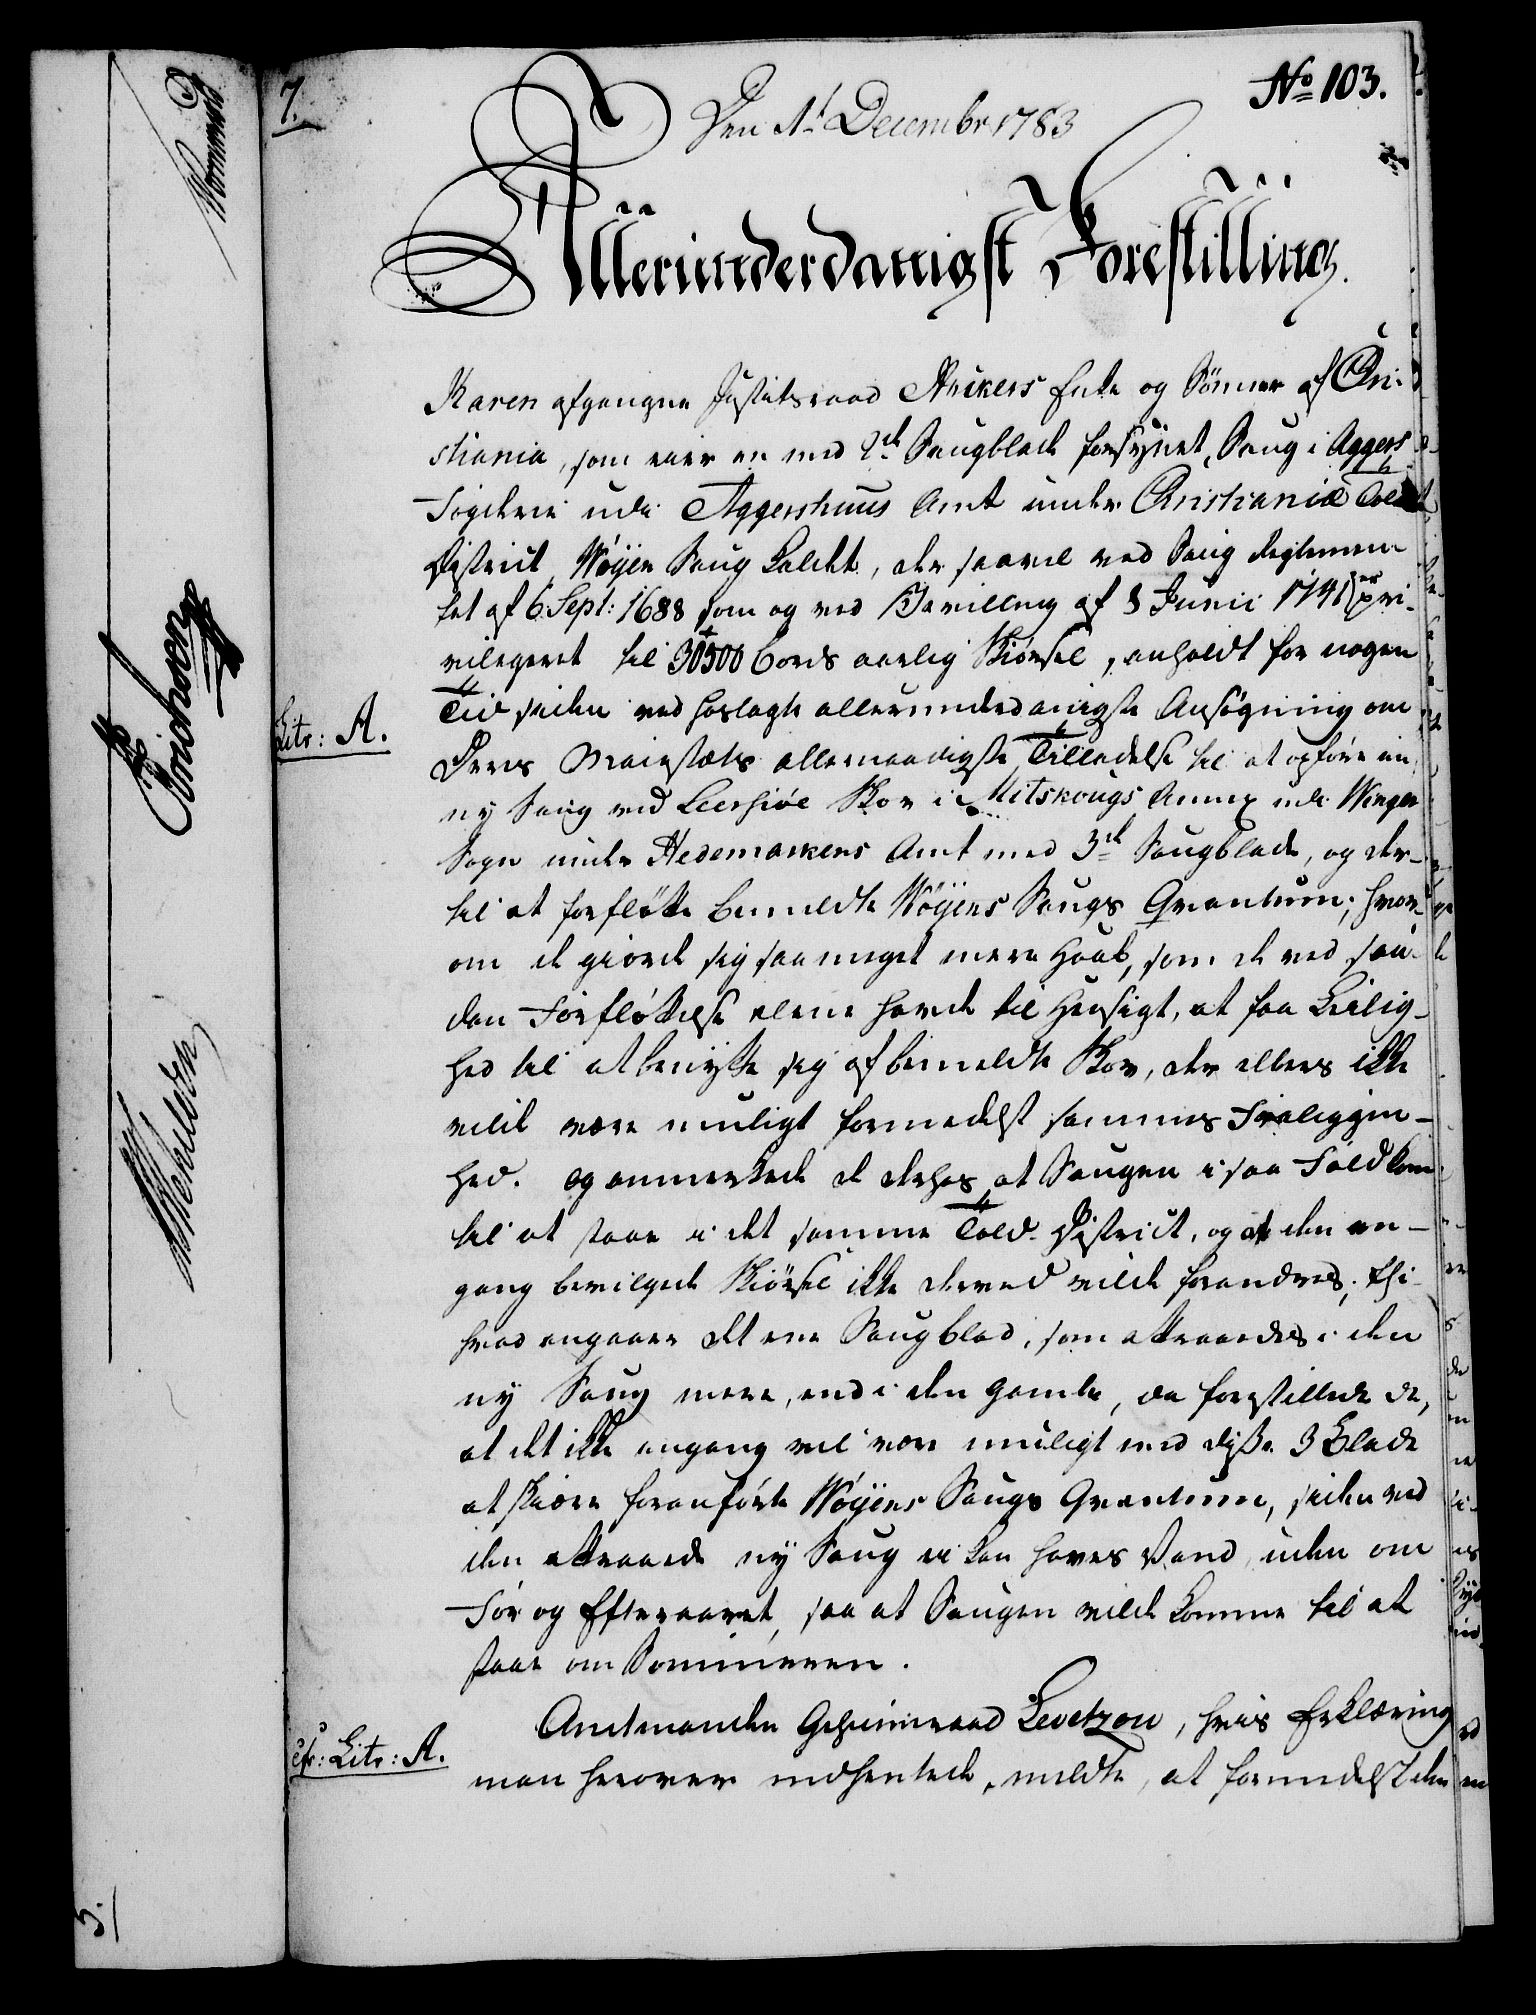 7.
No 103.
Den 1t Decembr 1783
Allerunderdanigst Forestilling.
Karen afgangne Justitsraad Ankers Enke og Sönner af Chri-
stiania, som eier en med 2de Saugblade forsÿnet Saug i Aggers
Fogderie udi Aggershuus Amt under Christaniæ Told
District, Wöÿen Saug kaldet, der saavel ved Saug Reglemen-
tet af 6 Sept: 1688 som og ved Bevilling af 3 Junii 1741 er pri-
vilegeret til 30500 Bords aarlig Skiørsel, anholdt for nogen
Tid siden ved hoslagte allerunderdanigste Ansøgning om
Litr: A.
Deres Maiestæts allernaadigste Tilladelse til at opføre en
nÿ Saug ved Leersiöe Skov i Mitskougs Annex udi Winger
Sogn under Hedemarkens Amt med 3de Saugblade, og der-
til at forflötte bemeldte Wöÿens Saugs Qvantum; hvor-
om de giorde sig saa meget mere Haab, som de ved saa-
dan Forflöttelse alene havde til Hensigt, at faa Leilig-
hed til at benÿtte sig af bemeldte Skov, der ellers ikke
vilde være muligt formedelst sammes Fraliggen-
hed. og anmerkede de derhos, at Saugen i saa Fald kom
til at staae i det samme Told-District, og at den en-
gang bevilgede Skiörsel ikke derved vilde forandres; thi
hvad angaaer det ene Saugblad, som attraaedes i den
nÿ Saug mere, end i den gamle, da forestillede de,
at det ikke engang vil være muligt med disse 3 Blade
at skiære foranförte Wöÿens Saugs Qvantum, siden ved
den attraaede nÿ Saug ei kan haves Vand uden om
För og Efteraaret, saa at Saugen vilde komme til at
staae om Sommeren.
Amtmanden Geheimeraad Levetzou, hvis Erklæring
cfr: Litr: A.
man herover indhentede, meldte, at formedelst den